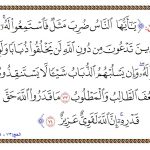 يَٰٓأَيُّهَا ٱلنَّاسُ ضُرِبَ مَثَلٌ فَٱسْتَمِعُوا۟ لَهُ
ٱلَّذِينَ تَدْعُونَ مِن دُونِ ٱللَّهِ لَن يَخْلُقُوا۟ ذُبَابًا وَلَوِ
لَهُۥ وَإِن يَسْلُبْهُمُ ٱلذُّبَابُ شَيْـًٔا لَّا يَسْتَنقِذُو
ضَعُفَ ٱلطَّالِبُ وَٱلْمَطْلُوبُ ٧٣ مَا قَدَرُوا۟ ٱللَّهَ حَقَّ
قَدْرِهِۦٓ إِنَّ ٱللَّهَ لَقَوِىٌّ عَزِيزٌ ٧٤